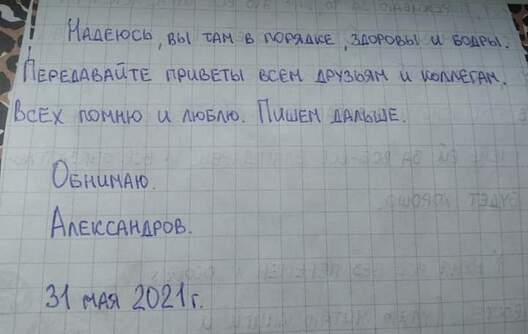 Надеюсь, вы там в порядке, здоровы и бодры.
Передавайте приветы всем друзьям и коллегам.
Всех помню и люблю. Пишем дальше.
Обнимаю.
Александров.
31 мая 2021 г.